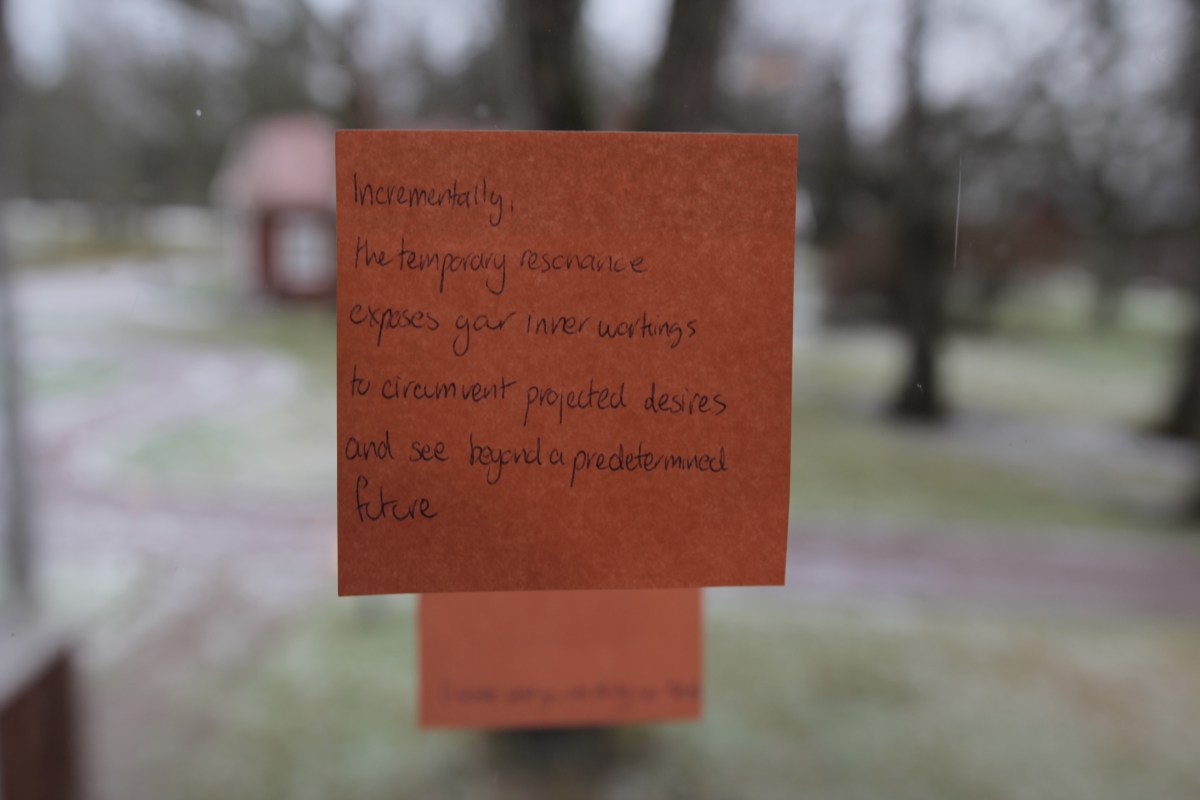 Incrementally,
the temporary resonance
exposes your inner workings
to circumvent projected desires
and see beyond a predetermined
future